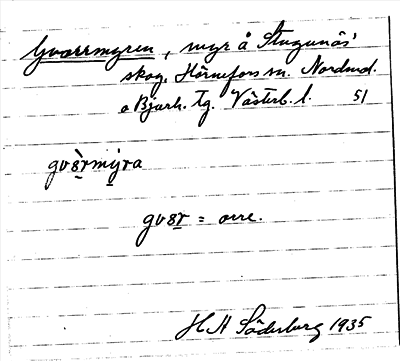 Gvarrmyren, myr å Stugunäs'
skog. Hörnefors sn. Nordmal.
o Bjurh. tg. Västerb. l. 51
gvèrmýra
gver = orre.
H H Söderberg 1935